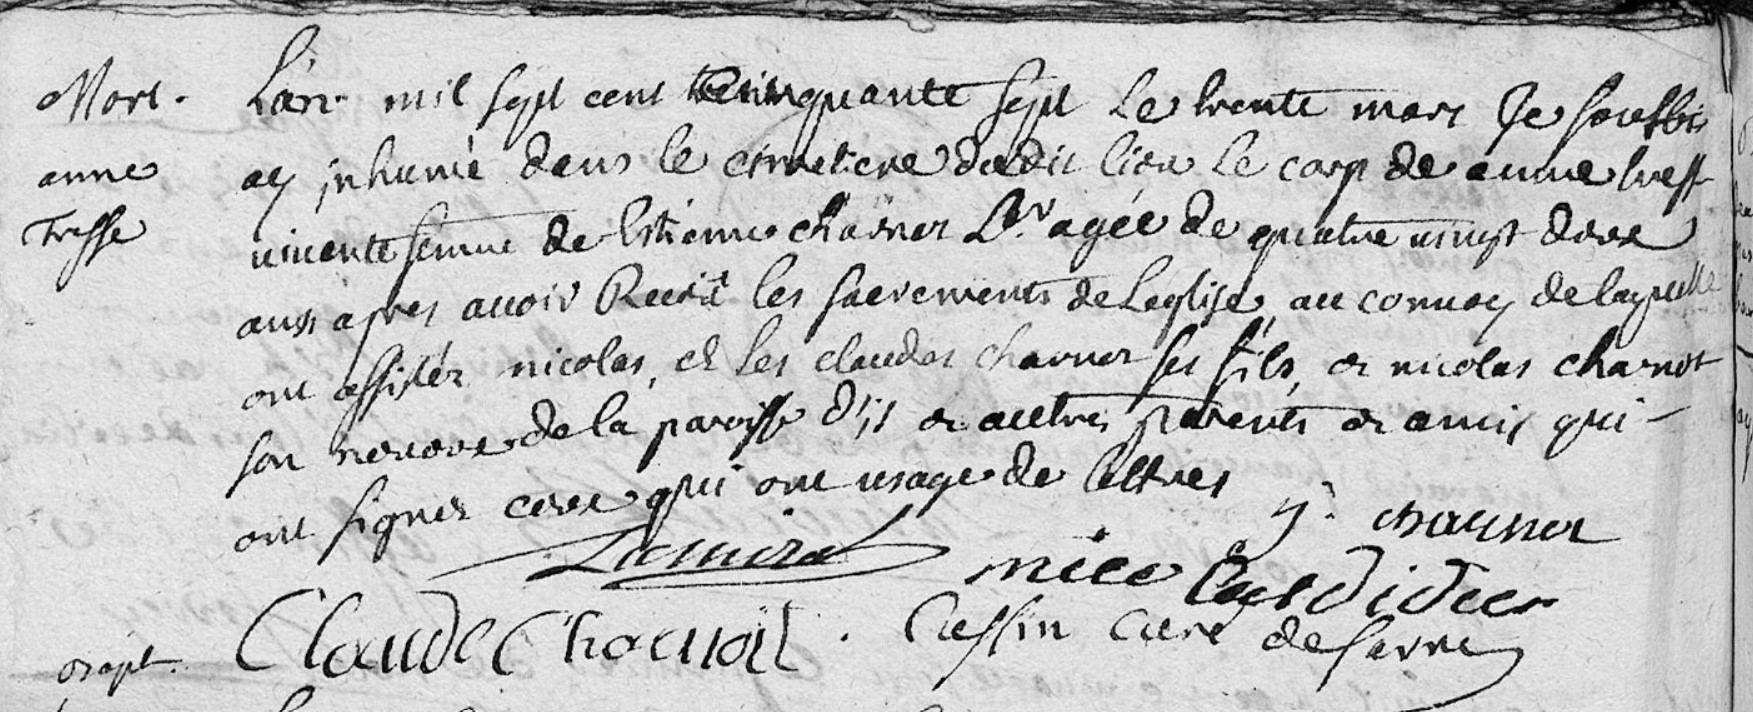 Mort.
anne
Tresse
L'an mil sept cent cinquante sept le trente mars Je soussbs
ay jnhumé dans le cimetiere dudit lieu le corp de anne tress
vivente femme de Estienne charner Lr. agée de quatre vingt deux
ans apres avoir Receu les sacrements de Leglise, au convoy de laquelle
ont assister nicolas, et les claudes charner ses fils, et nicolas charnot
son neveux de la paroisse d'is et autres parents et amis qui
ont signer ceux qui ont usage de lettres
n. charner
nicolas didier
Claude Charnot . Cassin curé de
bapt.